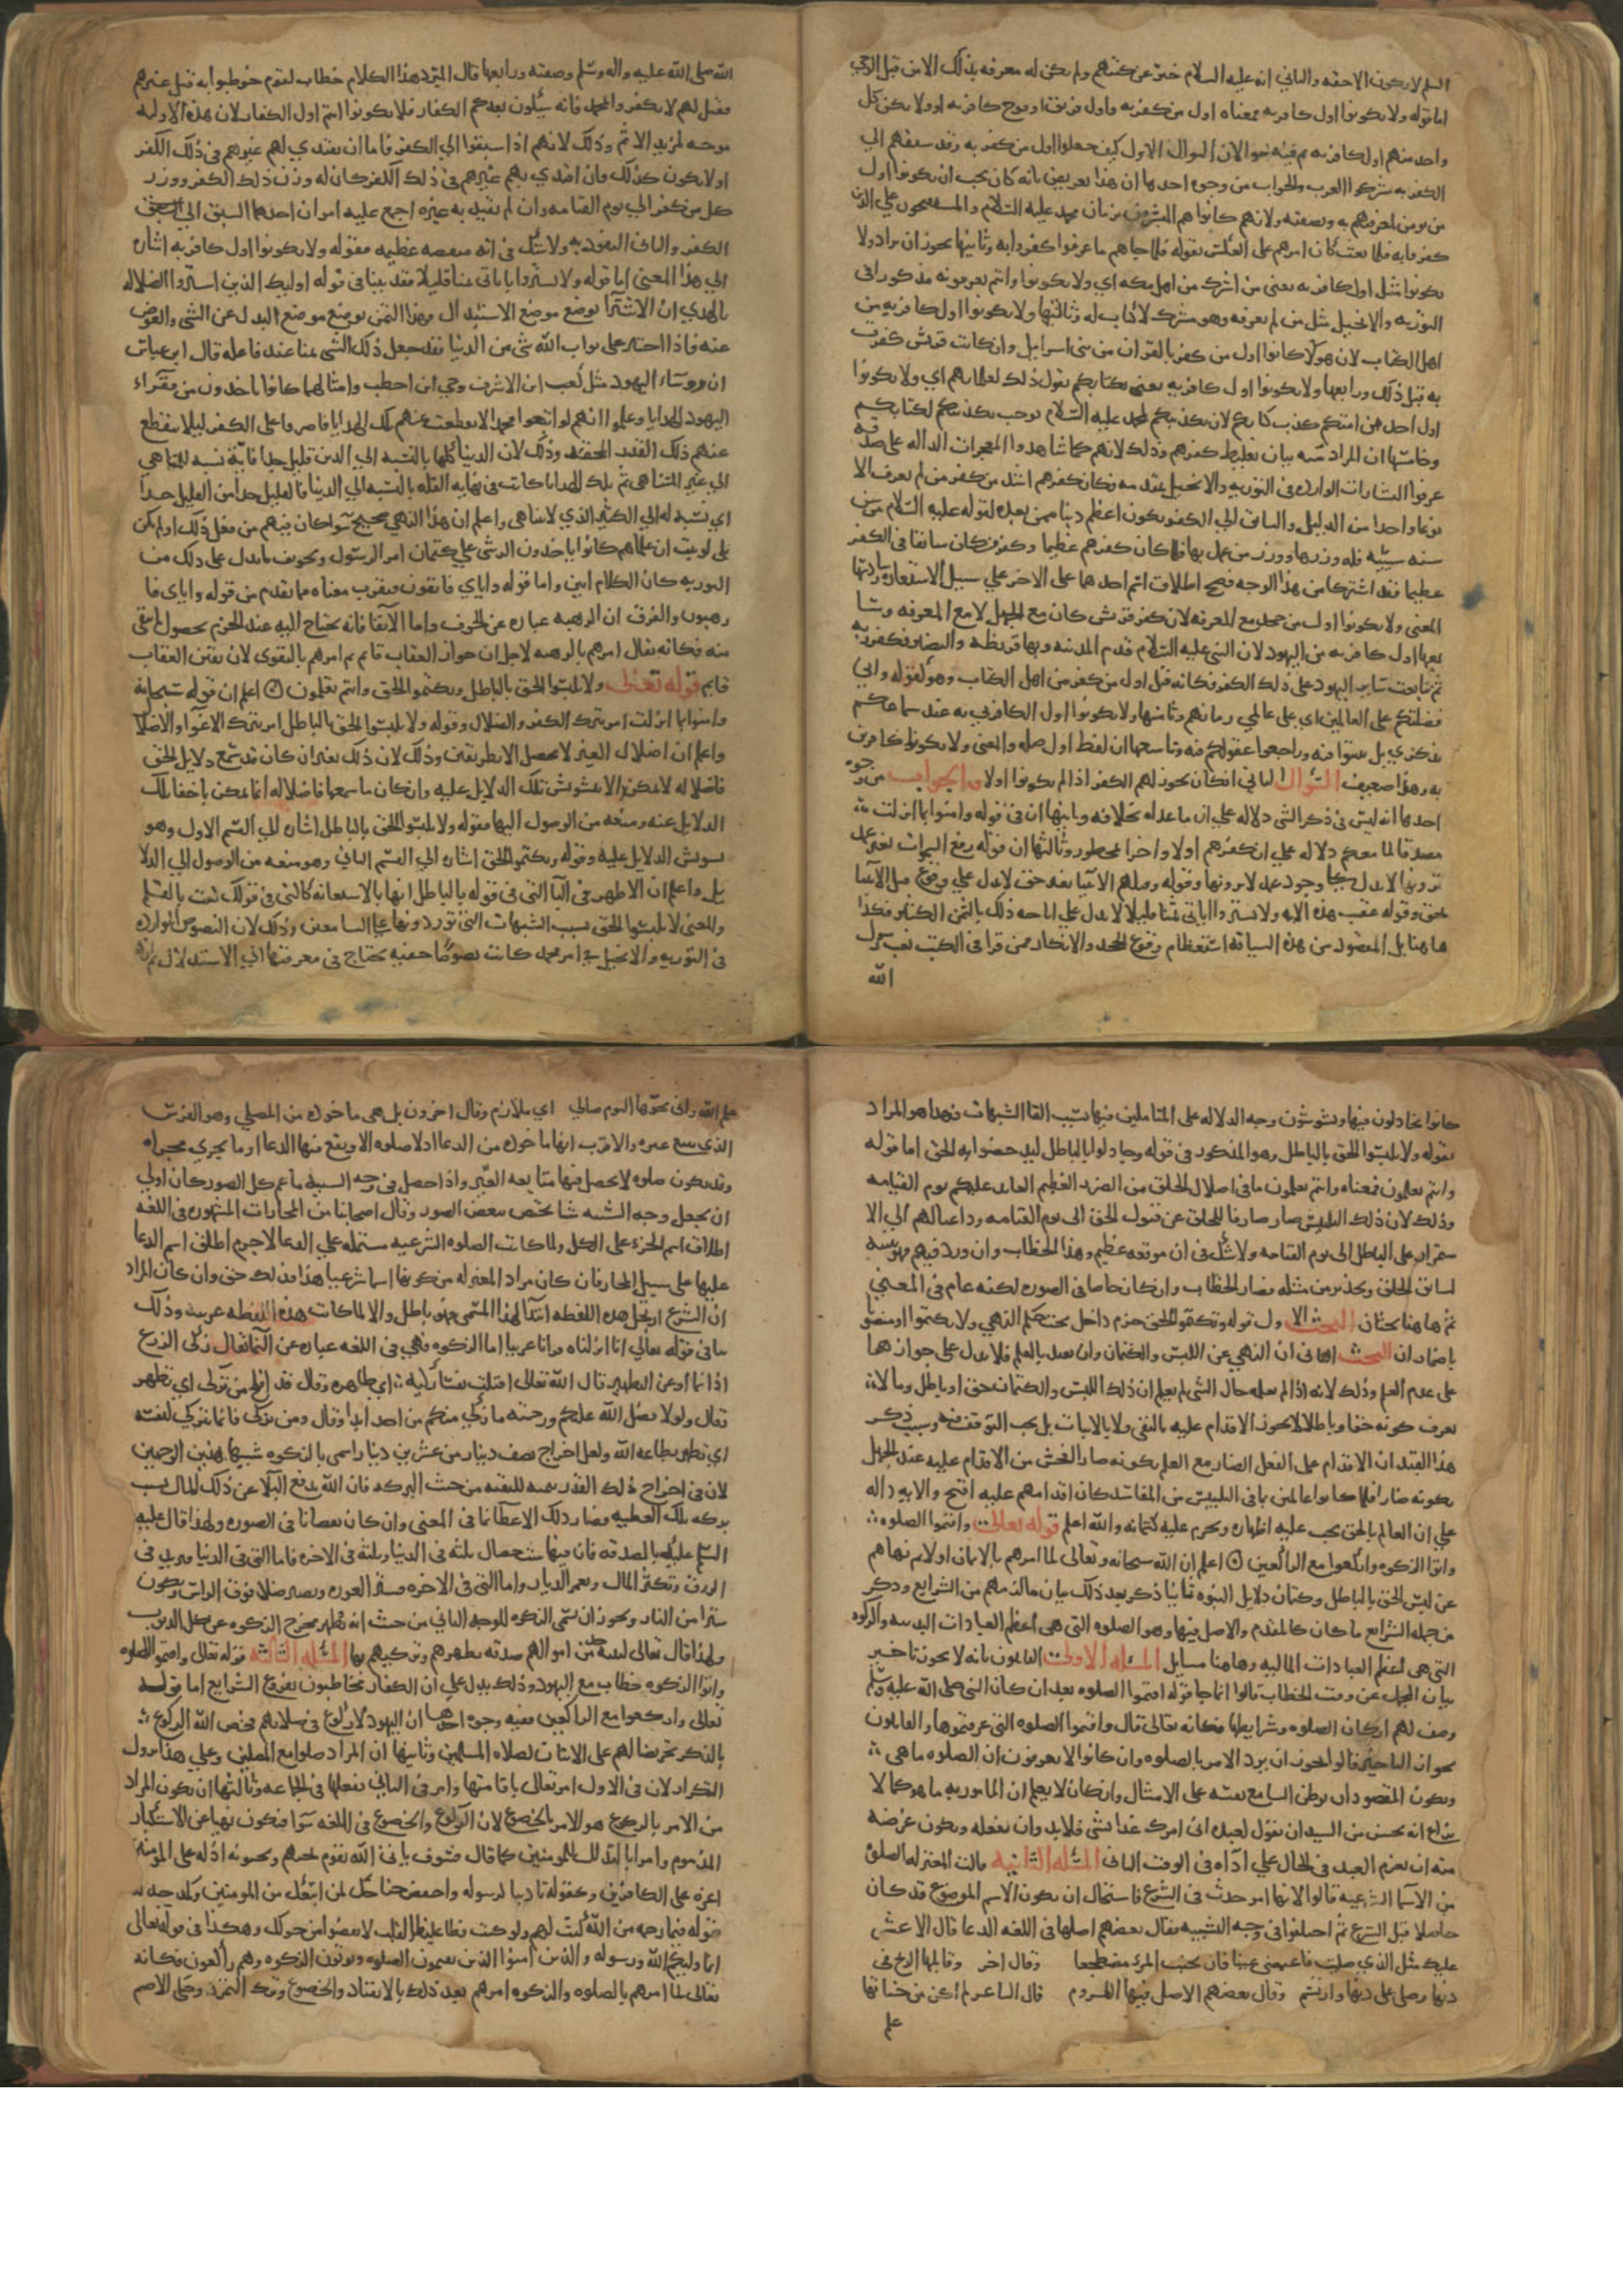 السلم لا يكون الا حقه والثاني انه عليه السلام خبر عن كتبهم ولم يكن له معرفه بذلك الا من قبل الوحي
اما قوله ولا تكونوا اول كافر به معناه اول من كفر به او اول فريق او فوج كافر به او ولا يكن كل
واحد منهم اول كافر به ثم فيه سوالان السوال الاول كيف جعلوا اول من كفر به وقد سبقهم الي
الكفر به مشركوا العرب والجواب من وجوه احدها ان هذا تعريض بانه كان يجب ان يكونوا اول
من يومن به لمعرفتهم به وبصفته ولانهم كانوا هم المبشرون بزمان محمد عليه السلام والمستفتحون علي الذين
كفروا به فلما بعث كان امرهم علي العكس لقوله فلما جاهم ما عرفوا كفروا به وثانيها يجوز ان يراد ولا
تكونوا مثل اول كافر به يعني من اشرك من اهل مكه اي ولا تكونوا وانتم تعرفونه مذكورا في
التوريه والانجيل مثل من لم يعرفه وهو مشرك لا كتاب له وثالثها ولا تكونوا اول كافر به من
اهل الكتاب لان هولا كانوا اول من كفر بالقران من بني اسرايل وان كانت قريش كفرت
به قبل ذلك ورابعها ولا تكونوا اول كافر به يعني بكتابكم يقول ذلك لعلمايهم اي ولا تكونوا
اول احد من امتكم كذب كتابكم لان تكذيبكم لمحمد عليه السلام يوجب تكذيبكم لكتابكم
وخامسها ان المراد منه بيان تغليظ كفرهم وذلك لانهم كما شاهدوا المعجزات الداله علي صدقه
عرفوا البشارات الوارده في التوريه والانجيل بمقدمه فكان كفرهم اشد من كفر من لم يعرف الا
نوعا واحدا من الدليل والسابق الي الكفر يكون اعظم ذنبا ممن بعده لقوله عليه السلام من سن
سنه سييه فله وزرها ووزر من عمل بها فلما كان كفرهم عظيما وكفر من كان سابقا في الكفر
عظيما فقد اشتركا من هذا الوجه فصح اطلاق اسم احدهما علي الاخر علي سبيل الاستعاره وسادسها
المعني ولا تكونوا اول من جحد مع المعرفه لان كفر قريش كان مع الجهل لا مع المعرفه وسا
بعها اول كافر به من اليهود لان النبي عليه السلام قدم المدينه وبها قريظه والنضير فكفروا به
ثم تتابعت ساير اليهود علي ذلك الكفر فكانه قيل اول من كفر من اهل الكتاب وهو كقوله واني
فضلتكم علي العالمين اي علي عالمي زمانهم وثامنها ولا تكونوا اول الكافرين به عند سماعكم
بذكري بل تثبتوا فيه وراجعوا عقولكم فيه وتاسعها ان لفظ اول صله والمعني ولا تكونوا كافرين
به وهذا ضعيف السوال الثاني انه كان يجوز لهم الكفر اذا لم يكونوا اولا والجواب من وجوه
احدها انه ليس في ذكر الشي دلاله علي ان ما عداه بخلافه وثانيها ان في قوله وامنوا بما انزلت
مصدقا لما معكم دلاله علي ان كفرهم اولا واخرا محظور وثالثها ان قوله رفع السموات بغير عمد
ترونها لا يدل علي وجود عمد لا يرونها وقوله وقتلهم الانبيا بغير حق لا يدل علي وقوع قتل الانبيا
بحق وقوله عقيب هذه الايه ولا تشتروا باياتي ثمنا قليلا لا يدل علي اباحه ذلك بالثمن الكثير فكذا
ها هنا بل المقصود من هذه السياقه استعظام وقوع الجحد والانكار ممن قرا في الكتب نعت رسول
الله
الله صلي الله عليه واله وسلم وصفته ورابعها قال المبرد هذا الكلام خطاب لقوم خوطبوا به قبل غيرهم
فقيل لهم لا تكفروا بمحمد فانه سيكون بعدكم الكفار فلا تكونوا انتم اول الكفار لان هذه الاوليه
موجبه لمزيد الاثم وذلك لانهم اذا سبقوا الي الكفر فاما ان يقتدي بهم غيرهم في ذلك الكفر
او لا يكون كذلك فان اقتدي بهم غيرهم في ذلك الكفر كان له وزن ذلك الكفر ووزر
كل من كفر الي يوم القيامه وان لم يقتد به غيره اجمع عليه امران احدهما السبق الي
الكفر والثاني التفرد به ولا شك في انه منقصه عظيمه فقوله ولا تكونوا اول كافر به اشاره
الي هذا المعني اما قوله ولا تشتروا باياتي ثمنا قليلا فقد بينا في قوله اوليك الذين اشتروا الضلاله
بالهدي ان الاشترا يوضع موضع الاستبدال وكذا الثمن يوضع موضع البدل عن الشي والعوض
عنه فاذا اختير علي ثواب الله شي من الدنيا فقد جعل ذلك الشي ثمنا عند فاعله قال ابن عباس
ان روساء اليهود مثل كعب ابن الاشرف وحيي ابن اخطب وامثالهما كانوا ياخذون من فقراء
اليهود الهدايا وعلموا انهم لو اتبعوا محمدا لانقطعت عنهم تلك الهدايا فاصروا علي الكفر ليلا ينقطع
عنهم ذلك القدر المحقر وذلك لان الدنيا كلها بالنسبه الي الدين قليل جدا فانه نسبه المتناهي
الي غير المتناهي ثم تلك الهدايا كانت في نهايه القله بالنسبه الي الدنيا فالقليل جدا من القليل جدا
اي نسبه له الي الكثير الذي لا يتناهي واعلم ان هذا النهي صحيح سوا كان فيهم من فعل ذلك او لم يكن
بل لو ثبت ان علماهم كانوا ياخذون الرشي علي كتمان امر الرسول وتحريف ما يدل علي ذلك من
التوريه كان الكلام ابين واما قوله واياي فاتقون فيقرب معناه مما تقدم من قوله واياي فا
رهبون والفرق ان الرهبه عباره عن الخوف واما الاتقا فانه يحتاج اليه عند الجزم بحصول ما يتقي
منه فكانه تعالي امرهم بالرهبه لاجل ان جواز العقاب قايم ثم امرهم بالتقوي لان تعين العقاب
قايم قوله تعالي ولا تلبسوا الحق بالباطل وتكتموا الحق وانتم تعلمون اعلم ان قوله سبحانه
وامنوا بما انزلت امر بترك الكفر والضلال وقوله ولا تلبسوا الحق بالباطل امر بترك الاغوا والاضلال
واعلم ان اضلال الغير لا يحصل الا بطريقين وذلك لان ذلك الغير ان كان قد سمع دلايل الحق
فاضلاله لا يمكن الا بتشويش تلك الدلايل عليه وان كان ما سمعها فاضلاله انما يمكن باخفا تلك
الدلايل عنه ومنعه من الوصول اليها فقوله ولا تلبسوا الحق بالباطل اشاره الي القسم الاول وهو
تشويش الدلايل عليه وقوله وتكتموا الحق اشاره الي القسم الثاني وهو منعه من الوصول الي الدلا
يل واعلم ان الاظهر في البا التي في قوله بالباطل انها بالاستعانه كالتي في قولك كتبت بالقلم
والمعني لا تلبسوا الحق بسبب الشبهات التي توردونها علي السامعين وذلك لان النصوص الوارده
في التوريه والانجيل في امر محمد كانت نصوصا خفيه يحتاج في معرفتها الي الاستدلال ثم انهم
كانوا يجادلون فيها ويشوشون وجه الدلاله علي المتاملين فيها بسبب القا الشبهات فهذا هو المراد
بقوله ولا تلبسوا الحق بالباطل وهو المذكور في قوله وجادلوا بالباطل ليدحضوا به الحق اما قوله
وانتم تعلمون فمعناه وانتم تعلمون ما في اضلال الخلق من الضرر العظيم العايد عليكم يوم القيامه
وذلك لان ذلك التلبيس صار صارفا للخلق عن قبول الحق الي يوم القيامه وداعيا لهم الي الا
ستمرار علي الباطل الي يوم القيامه ولا شك في ان موقعه عظيم وهذا الخطاب وان ورد فيهم فهو تنبيه
لساير الخلق وتحذير من مثله فصار الخطاب وان كان خاصا في الصوره لكنه عام في المعني
ثم ها هنا بحثان البحث الاول قوله وتكتموا الحق جزم داخل تحت حكم النهي ولا تكتموا او منصوب
باضمار ان البحث الثاني ان النهي عن اللبس والكتمان وان تقيد بالعلم فلا يدل علي جوازهما
علي عدم العلم وذلك لانه اذا لم يعلم حال الشي لم يعلم ان ذلك اللبس والكتمان حق او باطل وما لا
يعرف كونه حقا وباطلا لا يجوز الاقدام عليه بالنفي ولا بالاثبات بل يجب التوقف فيه وسبب ذكر
هذا القيد ان الاقدام علي الفعل الضار مع العلم بكونه ضارا افحش من الاقدام عليه عند الجهل
بكونه ضارا فلما كانوا عالمين بما في التلبيس من المفاسد كان اقدامهم عليه اقبح والايه داله
علي ان العالم بالحق يجب عليه اظهاره ويحرم عليه كتمانه والله اعلم قوله تعالي واقيموا الصلوه
واتوا الزكوه واركعوا مع الراكعين اعلم ان الله سبحانه وتعالي لما امرهم بالايمان اولا ثم نهاهم
عن لبس الحق بالباطل وكتمان دلايل النبوه ثانيا ذكر بعد ذلك بيان ما لزمهم من الشرايع وذكر
من جمله الشرايع ما كان كالمقدم والاصل فيها وهو الصلوه التي هي اعظم العبادات البدنيه والزكوه
التي هي اعظم العبادات الماليه وها هنا مسايل المسله الاولي القايلون بانه لا يجوز تاخير
بيان المجمل عن وقت الخطاب قالوا انما جا قوله اقيموا الصلوه بعد ان كان النبي صلي الله عليه وسلم
وصف لهم اركان الصلوه وشرايطها فكانه تعالي قال واقيموا الصلوه التي عرفتموها والقايلون
بجواز التاخير قالوا يجوز ان يرد الامر بالصلوه وان كانوا لا يعرفون ان الصلوه ما هي
ويكون المقصود ان يوطن السامع نفسه علي الامتثال وان كان لا يعلم ان المامور به ما هو كما لا
نزاع انه يحسن من السيد ان يقول لعبده اني امرك غدا بشي فلا بد وان تفعله ويكون غرضه
منه ان يعزم العبد في الحال علي اداه في الوقت الثاني المسله الثانيه قالت المعتزله الصلوه
من الاسما الشرعيه قالوا لانها امر حدث في الشرع فاستحال ان يكون الاسم الموضوع قد كان
حاصلا قبل الشرع ثم اختلفوا في وجه التشبيه فقال بعضهم اصلها في اللغه الدعا قال الاعشي
عليك مثل الذي صليت فاغتمضي عينا فان بجنب المرء مضطجعا وقال اخر وقابلها الريح في
دنها وصلي علي دنها وارتسم وقال بعضهم الاصل فيها اللزوم قال الشاعر لم اكن من جناتها
علم
علم الله واني بحرها اليوم صالي اي ملازم وقال اخرون بل هي ماخوذه من المصلي وهو الفرس
الذي يتبع غيره والاقرب انها ماخوذه من الدعا اذ لا صلوه الا ويقع فيها الدعا او ما يجري مجراه
وقد تكون صلوه لا يحصل فيها متابعه الغير واذا حصل في وجه التشبيه ما عم كل الصور كان اولي
ان يجعل وجه التشبيه شيا يختص ببعض الصور وقال اصحابنا من المجازات المشهوره في اللغه
اطلاق اسم الجزء علي الكل ولما كانت الصلوه الشرعيه مشتمله علي الدعا لا جرم اطلق اسم الدعا
عليها علي سبيل المجاز فان كان مراد المعتزله من كونها اسما شرعيا هذا فذلك حق وان كان المراد
ان الشرع ارتجل هذه اللفظه ابتدا لهذا المسمي فهو باطل والا لما كانت هذه اللفظه عربيه وذلك
ينافي قوله تعالي انا انزلناه قرانا عربيا اما الزكوه فهي في اللغه عباره عن النما يقال زكي الزرع
اذا نما وعن التطهير قال الله تعالي اقتلت نفسا زكيه اي طاهره وقال قد افلح من تزكي اي تطهر
تعالي ولولا فضل الله عليكم ورحمته ما زكي منكم من احد ابدا وقال ومن تزكي فانما يتزكي لنفسه
اي تطهر بطاعه الله ولعل اخراج نصف دينار من عشرين دينارا سمي بالزكوه تشبيها بهذين الوجهين
لان في اخراج ذلك القدر تنميه للبقيه من حيث البركه فان الله يدفع البلا عن ذلك المال بسبب
بركه تلك العطيه فصار ذلك الاعطا نما في المعني وان كان نقصانا في الصوره ولهذا قال عليه
السلم عليكم بالصدقه فان فيها ست خصال ثلثه في الدنيا وثلثه في الاخره فاما التي في الدنيا فتزيد في
الرزق وتكثر المال وتعمر الديار واما التي في الاخره فتستر العوره وتصير ظلا فوق الراس وتكون
سترا من النار ويجوز ان تسمي الزكوه للوجه الثاني من حيث انها تطهر مخرج الزكوه عن كل الذنوب
ولهذا قال تعالي لنبيه خذ من اموالهم صدقه تطهرهم وتزكيهم بها المسله الثالثه قوله تعالي واقيموا الصلوه
واتوا الزكوه خطاب مع اليهود وذلك يدل علي ان الكفار مخاطبون بفروع الشرايع اما قوله
تعالي واركعوا مع الراكعين ففيه وجوه احدها ان اليهود لا ركوع في صلاتهم فخص الله الركوع
بالذكر تحريضا لهم علي الاتيان لصلاه المسلمين وثانيها ان المراد صلوا مع المصلين وعلي هذا يزول
التكرار لان في الاول امر تعالي باقامتها وامر في الثاني بفعلها في الجماعه وثالثها ان يكون المراد
من الامر بالركوع هو الامر بالخضوع لان الركوع والخضوع في اللغه سوا فيكون نهيا عن الاستكبار
المذموم وامرا بالتذلل للمومنين كما قال فسوف ياتي الله بقوم يحبهم ويحبونه اذله علي المومنين
اعزه علي الكافرين وكقوله تاديبا لرسوله واخفض جناحك لمن اتبعك من المومنين وكمدحه له
بقوله فبما رحمه من الله لنت لهم ولو كنت فظا غليظ القلب لانفضوا من حولك وهكذا في قوله تعالي
انما وليكم الله ورسوله والذين امنوا الذين يقيمون الصلوه ويوتون الزكوه وهم راكعون فكانه
تعالي لما امرهم بالصلوه والزكوه امرهم بعد ذلك بالانقياد والخضوع وترك التمرد وحكي الاصم